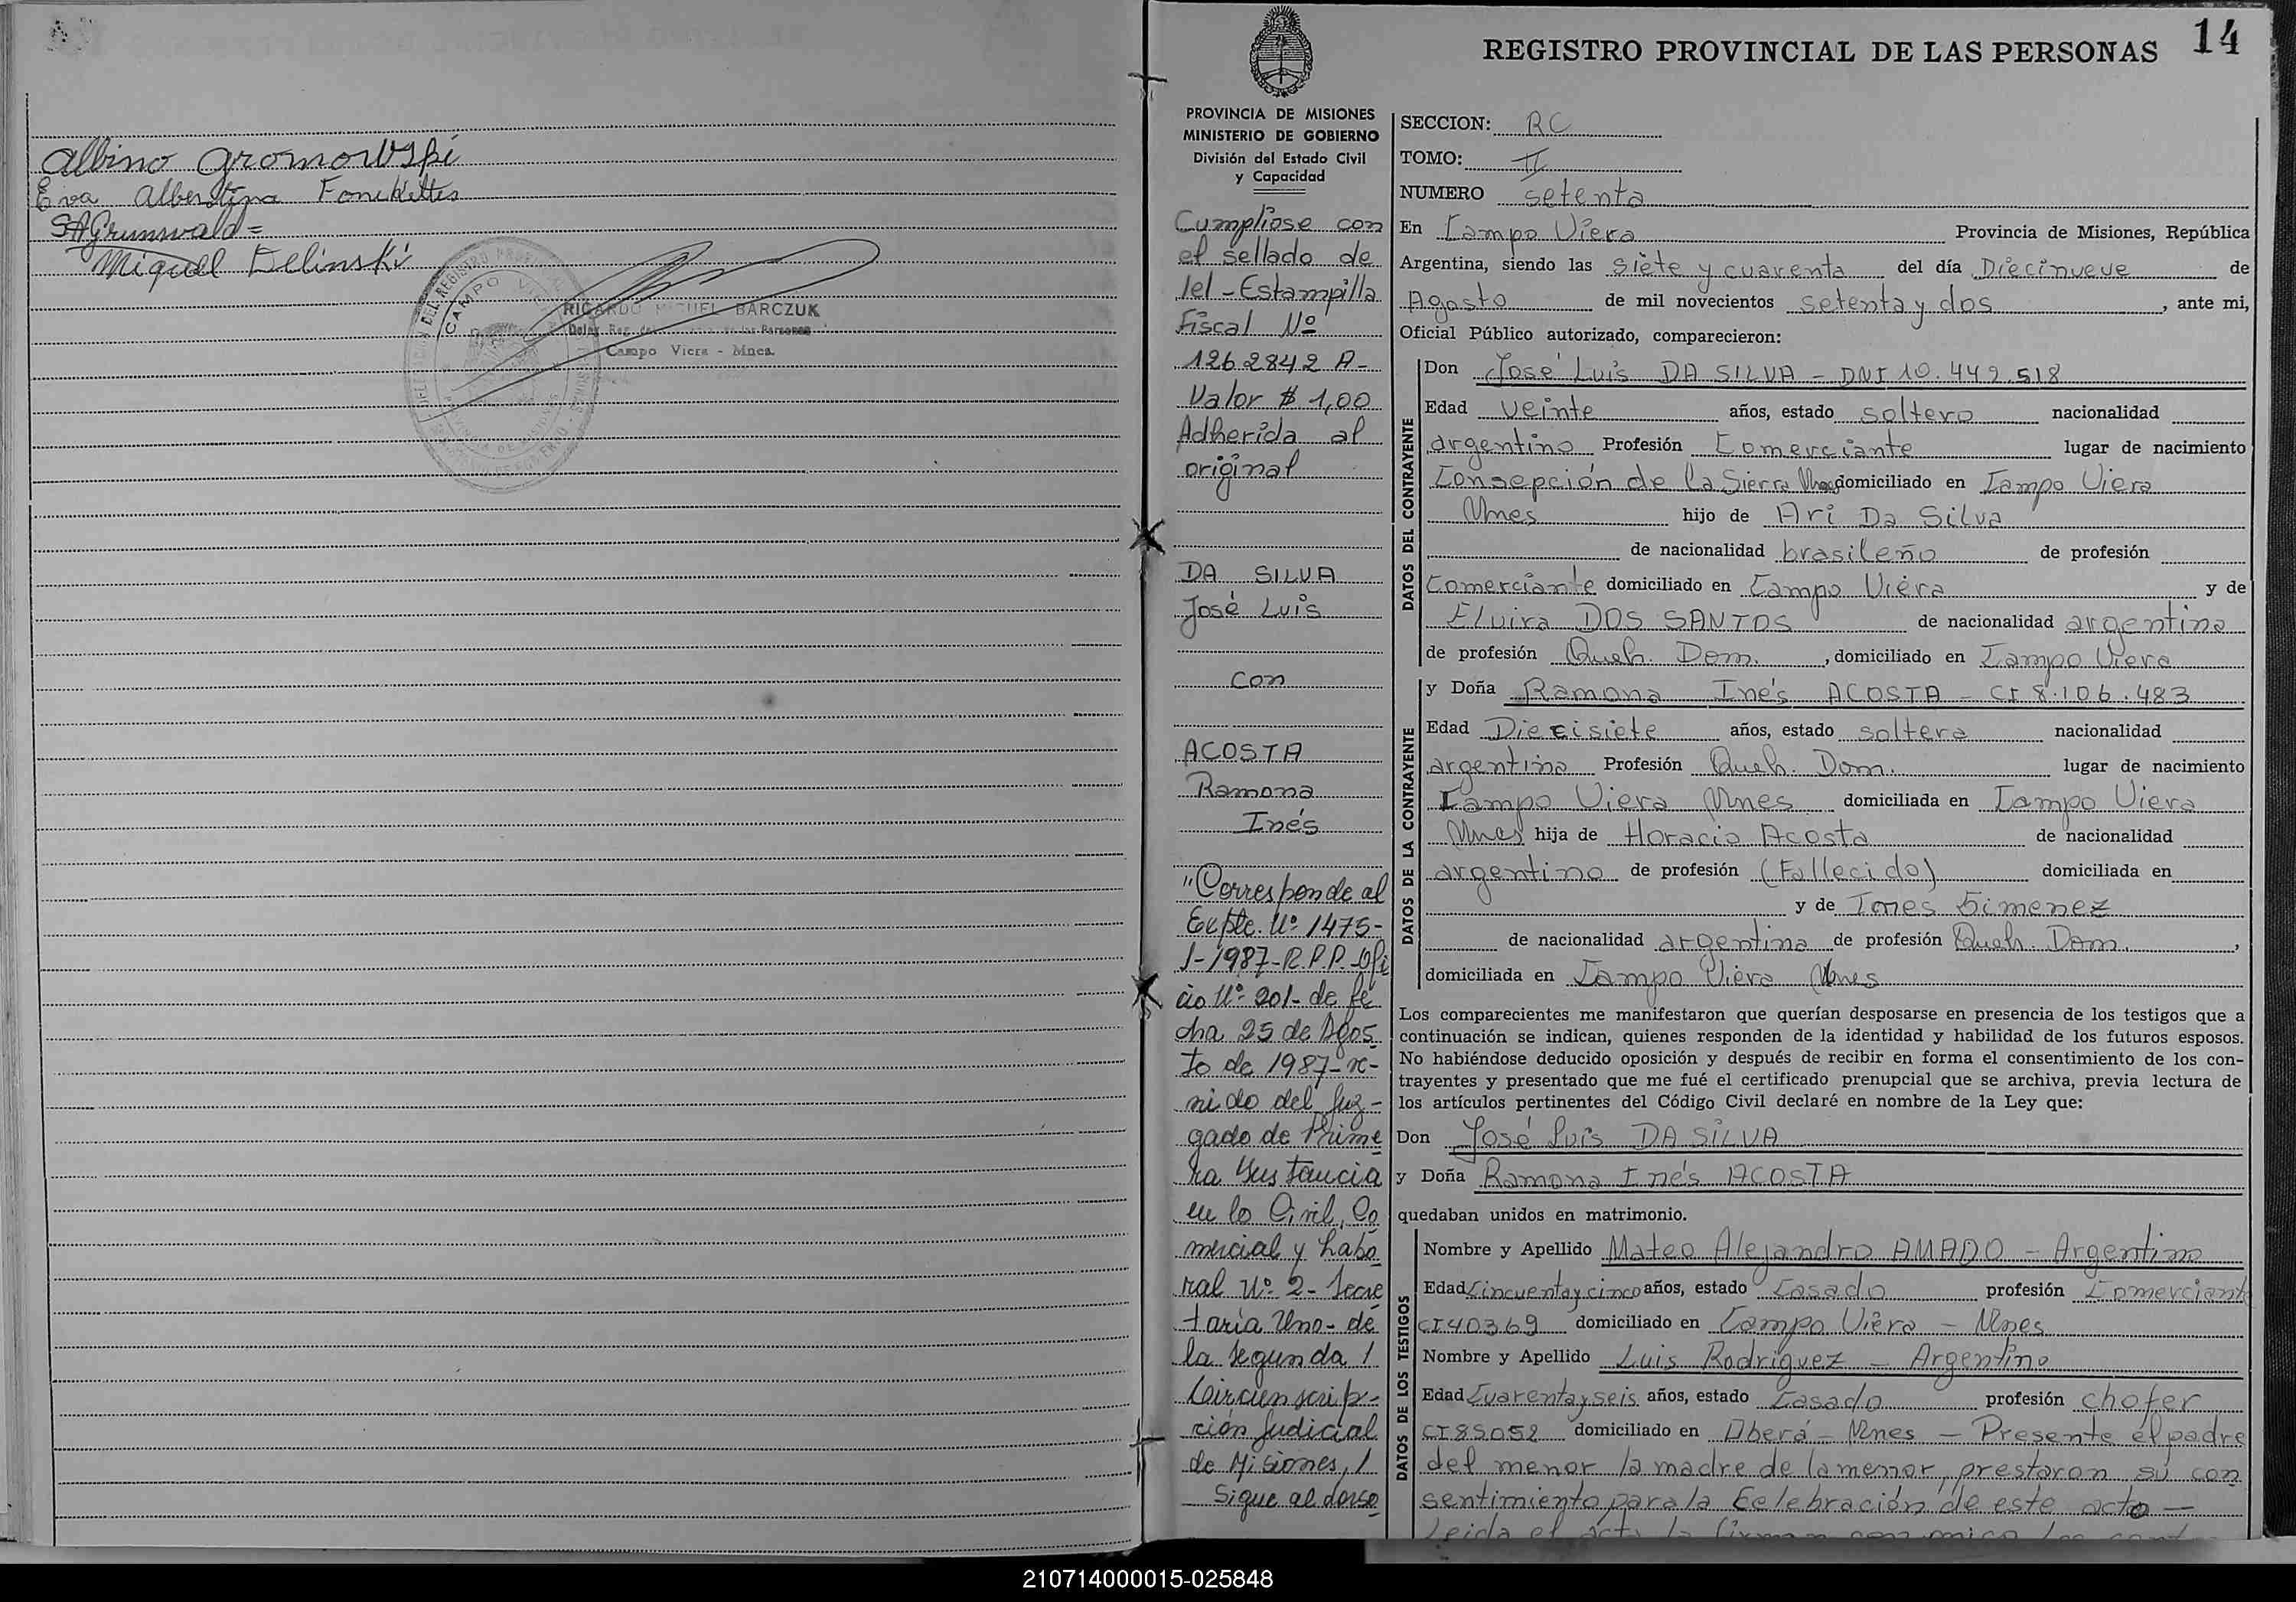 Albino Gromowski
Eva Albertina
SAGrunwald =
Miguel Zelinski
RICARDO MIGUEL BARCZUK
Campo Viera - Mnes.
CAMPO
14
REGISTRO PROVINCIAL DE LAS PERSONAS
PROVINCIA DE MISIONES
MINISTERIO DE GOBIERNO
División del Estado Civil
y Capacidad
Cumplióse con
el sellado de
lel - Estampilla
Fiscal Nº
1262842 A-
Valor $ 1,00
Adherida al
original
DA SILVA
José Luis
con
ACOSTA
Ramona
Inés
"Corresponde al
Expte. Nº 1475-
J-1987-R.P.P.-Ofi
cio Nº 201- de fe
cha 25 de Agos
to de 1987- re-
nido del Juz-
gado de Prime
ra Instancia
en lo Civil, Co
mercial y Labo
ral Nº 2- Secre
taría Uno- de
la segunda /
Circunscrip-
ción Judicial
de Misiones, /
Sigue al dorso
SECCION: RC
TOMO: II
NUMERO setenta
En Campo Viera Provincia de Misiones, República
Argentina, siendo las siete y cuarenta del día Diecinueve de
Agosto de mil novecientos setenta y dos, ante mi,
Oficial Público autorizado, comparecieron:
DATOS DEL CONTRAYENTE
Don José Luis DA SILVA - DNI 10.442.518
Edad veinte años, estado soltero nacionalidad
argentino Profesión Comerciante lugar de nacimiento
Consepción de la Sierra Mnes domiciliado en Campo Viera
Mnes hijo de Ari Da Silva
de nacionalidad brasileño de profesión
Comerciante domiciliado en Campo Viera y de
Elvira DOS SANTOS de nacionalidad argentina
de profesión Queh. Dom., domiciliado en Campo Viera
DATOS DE LA CONTRAYENTE
y Doña Ramona Inés ACOSTA - CI 8.106.483
Edad Diecisiete años, estado soltera nacionalidad
argentina Profesión Queh. Dom. lugar de nacimiento
Campo Viera Mnes domiciliada en Campo Viera
Mnes hija de Horacio Acosta de nacionalidad
argentino de profesión (Fallecido) domiciliada en
y de Ines Gimenez
de nacionalidad argentina de profesión Queh. Dom.,
domiciliada en Campo Viera Mnes
Los comparecientes me manifestaron que querían desposarse en presencia de los testigos que a
continuación se indican, quienes responden de la identidad y habilidad de los futuros esposos.
No habiéndose deducido oposición y después de recibir en forma el consentimiento de los con-
trayentes y presentado que me fué el certificado prenupcial que se archiva, previa lectura de
los artículos pertinentes del Código Civil declaré en nombre de la Ley que:
Don José Luis DA SILVA
y Doña Ramona Inés ACOSTA
quedaban unidos en matrimonio.
DATOS DE LOS TESTIGOS
Nombre y Apellido Mateo Alejandro AMADO - Argentino
Edad Cincuenta y cinco años, estado Casado profesión Comerciante
CI 40369 domiciliado en Campo Viera - Mnes
Nombre y Apellido Luis Rodriguez - Argentino
Edad Cuarenta y seis años, estado Casado profesión chofer
CI 85052 domiciliado en Oberá - Mnes - Presente el padre
del menor la madre de la menor, prestaron su con
sentimiento para la Celebración de este acto -
Leida el acta la firman conmigo los
210714000015-025848